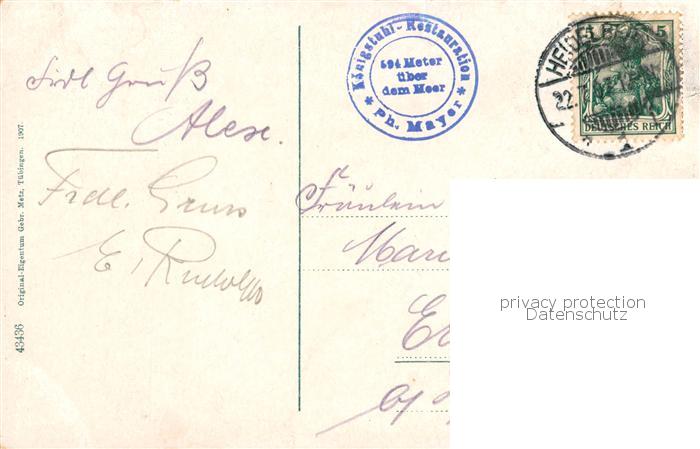 Frdl Gruß
Alex.
Frdl. Gruss
E. Rudolph
43436 Original-Eigentum Gebr. Metz, Tübingen. 1907.
Königstuhl-Restauration
594 Meter
über
dem Meer
* Ph. Mayer *
HEIDELB
22.
5
DEUTSCHES REICH
Fräulein
Mari
privacy protection
Datenschutz